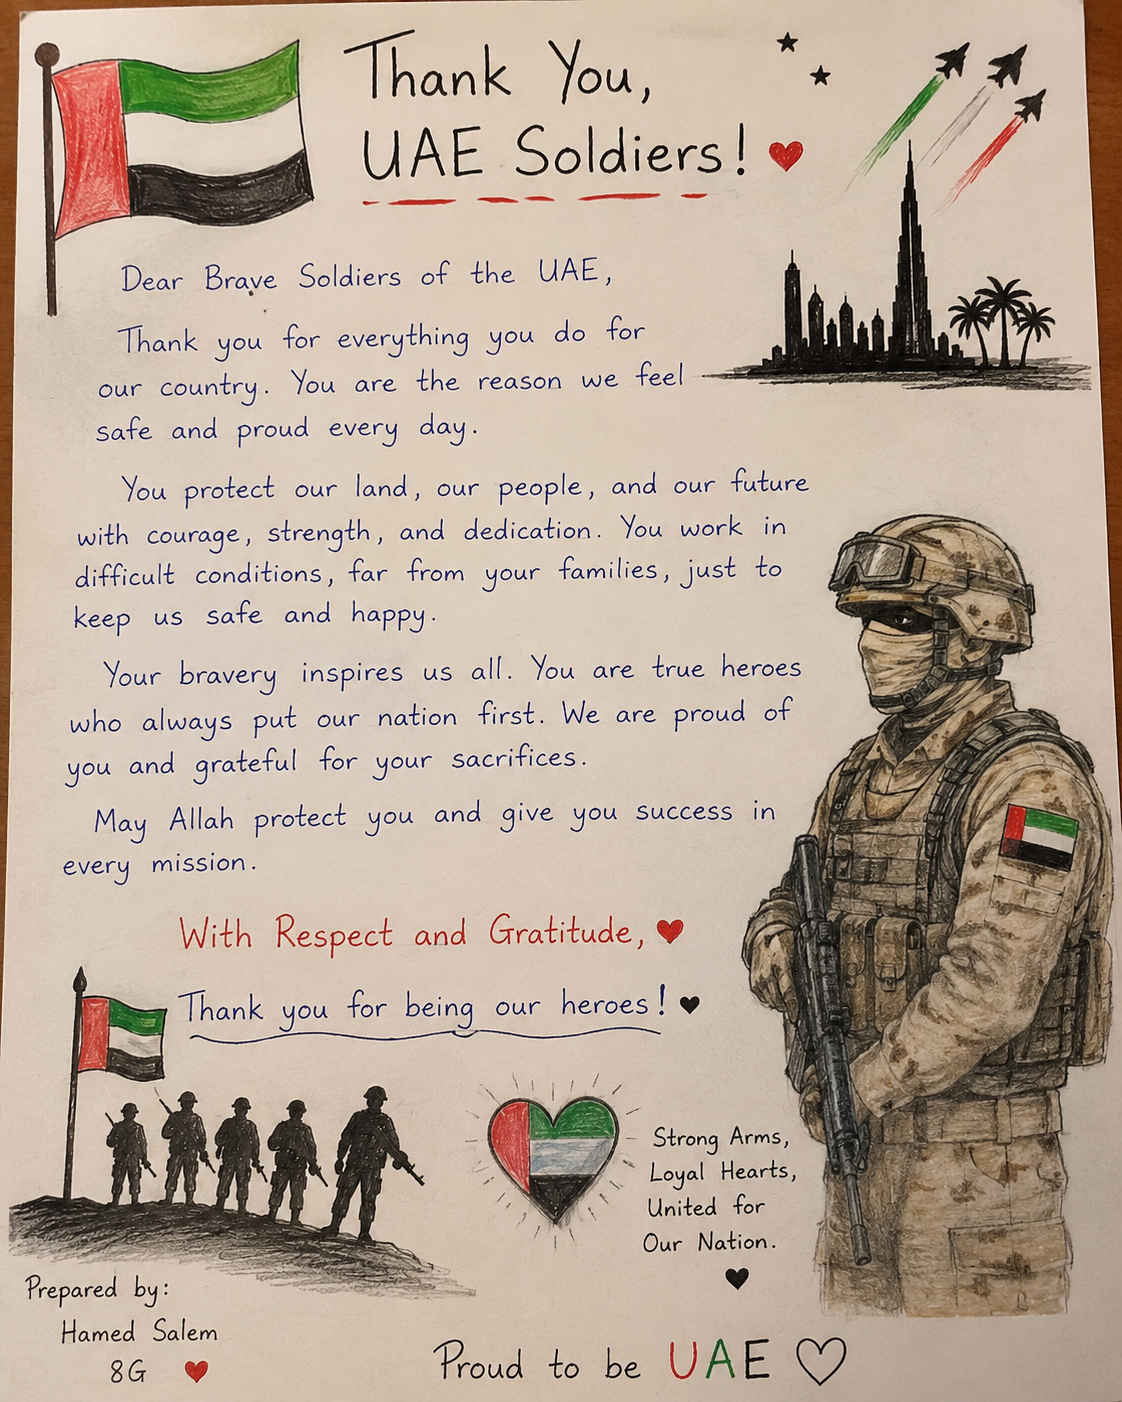 Thank You,
UAE Soldiers!
Dear Brave Soldiers of the UAE,
Thank you for everything you do for
our country. You are the reason we feel
safe and proud every day.
You protect our land, our people, and our future
with courage, strength, and dedication. You work in
difficult conditions, far from your families, just to
keep us safe and happy.
Your bravery inspires us all. You are true heroes
who always put our nation first. We are proud of
you and grateful for your sacrifices.
May Allah protect you and give you success in
every mission.
With Respect and Gratitude,
Thank you for being our heroes!
Strong Arms,
Loyal Hearts,
United for
Our Nation.
Prepared by:
Hamed Salem
8G
Proud to be UAE